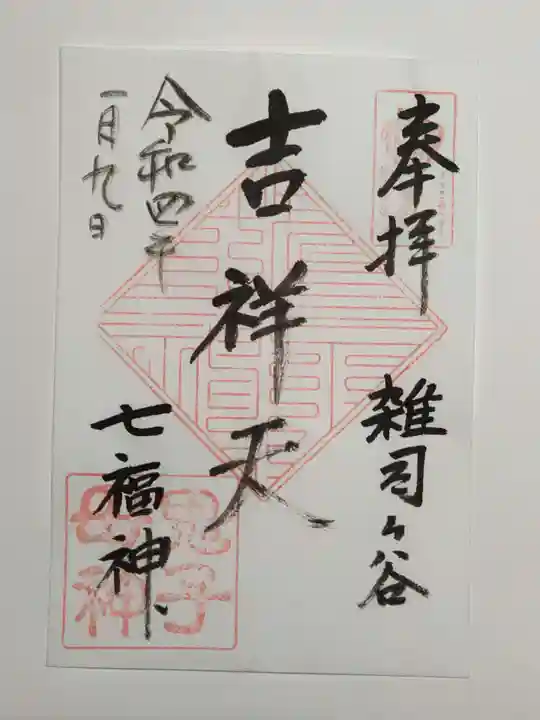 奉拝
雑司ヶ谷
吉祥天
令和四年
一月九日
七福神
鬼子
母神